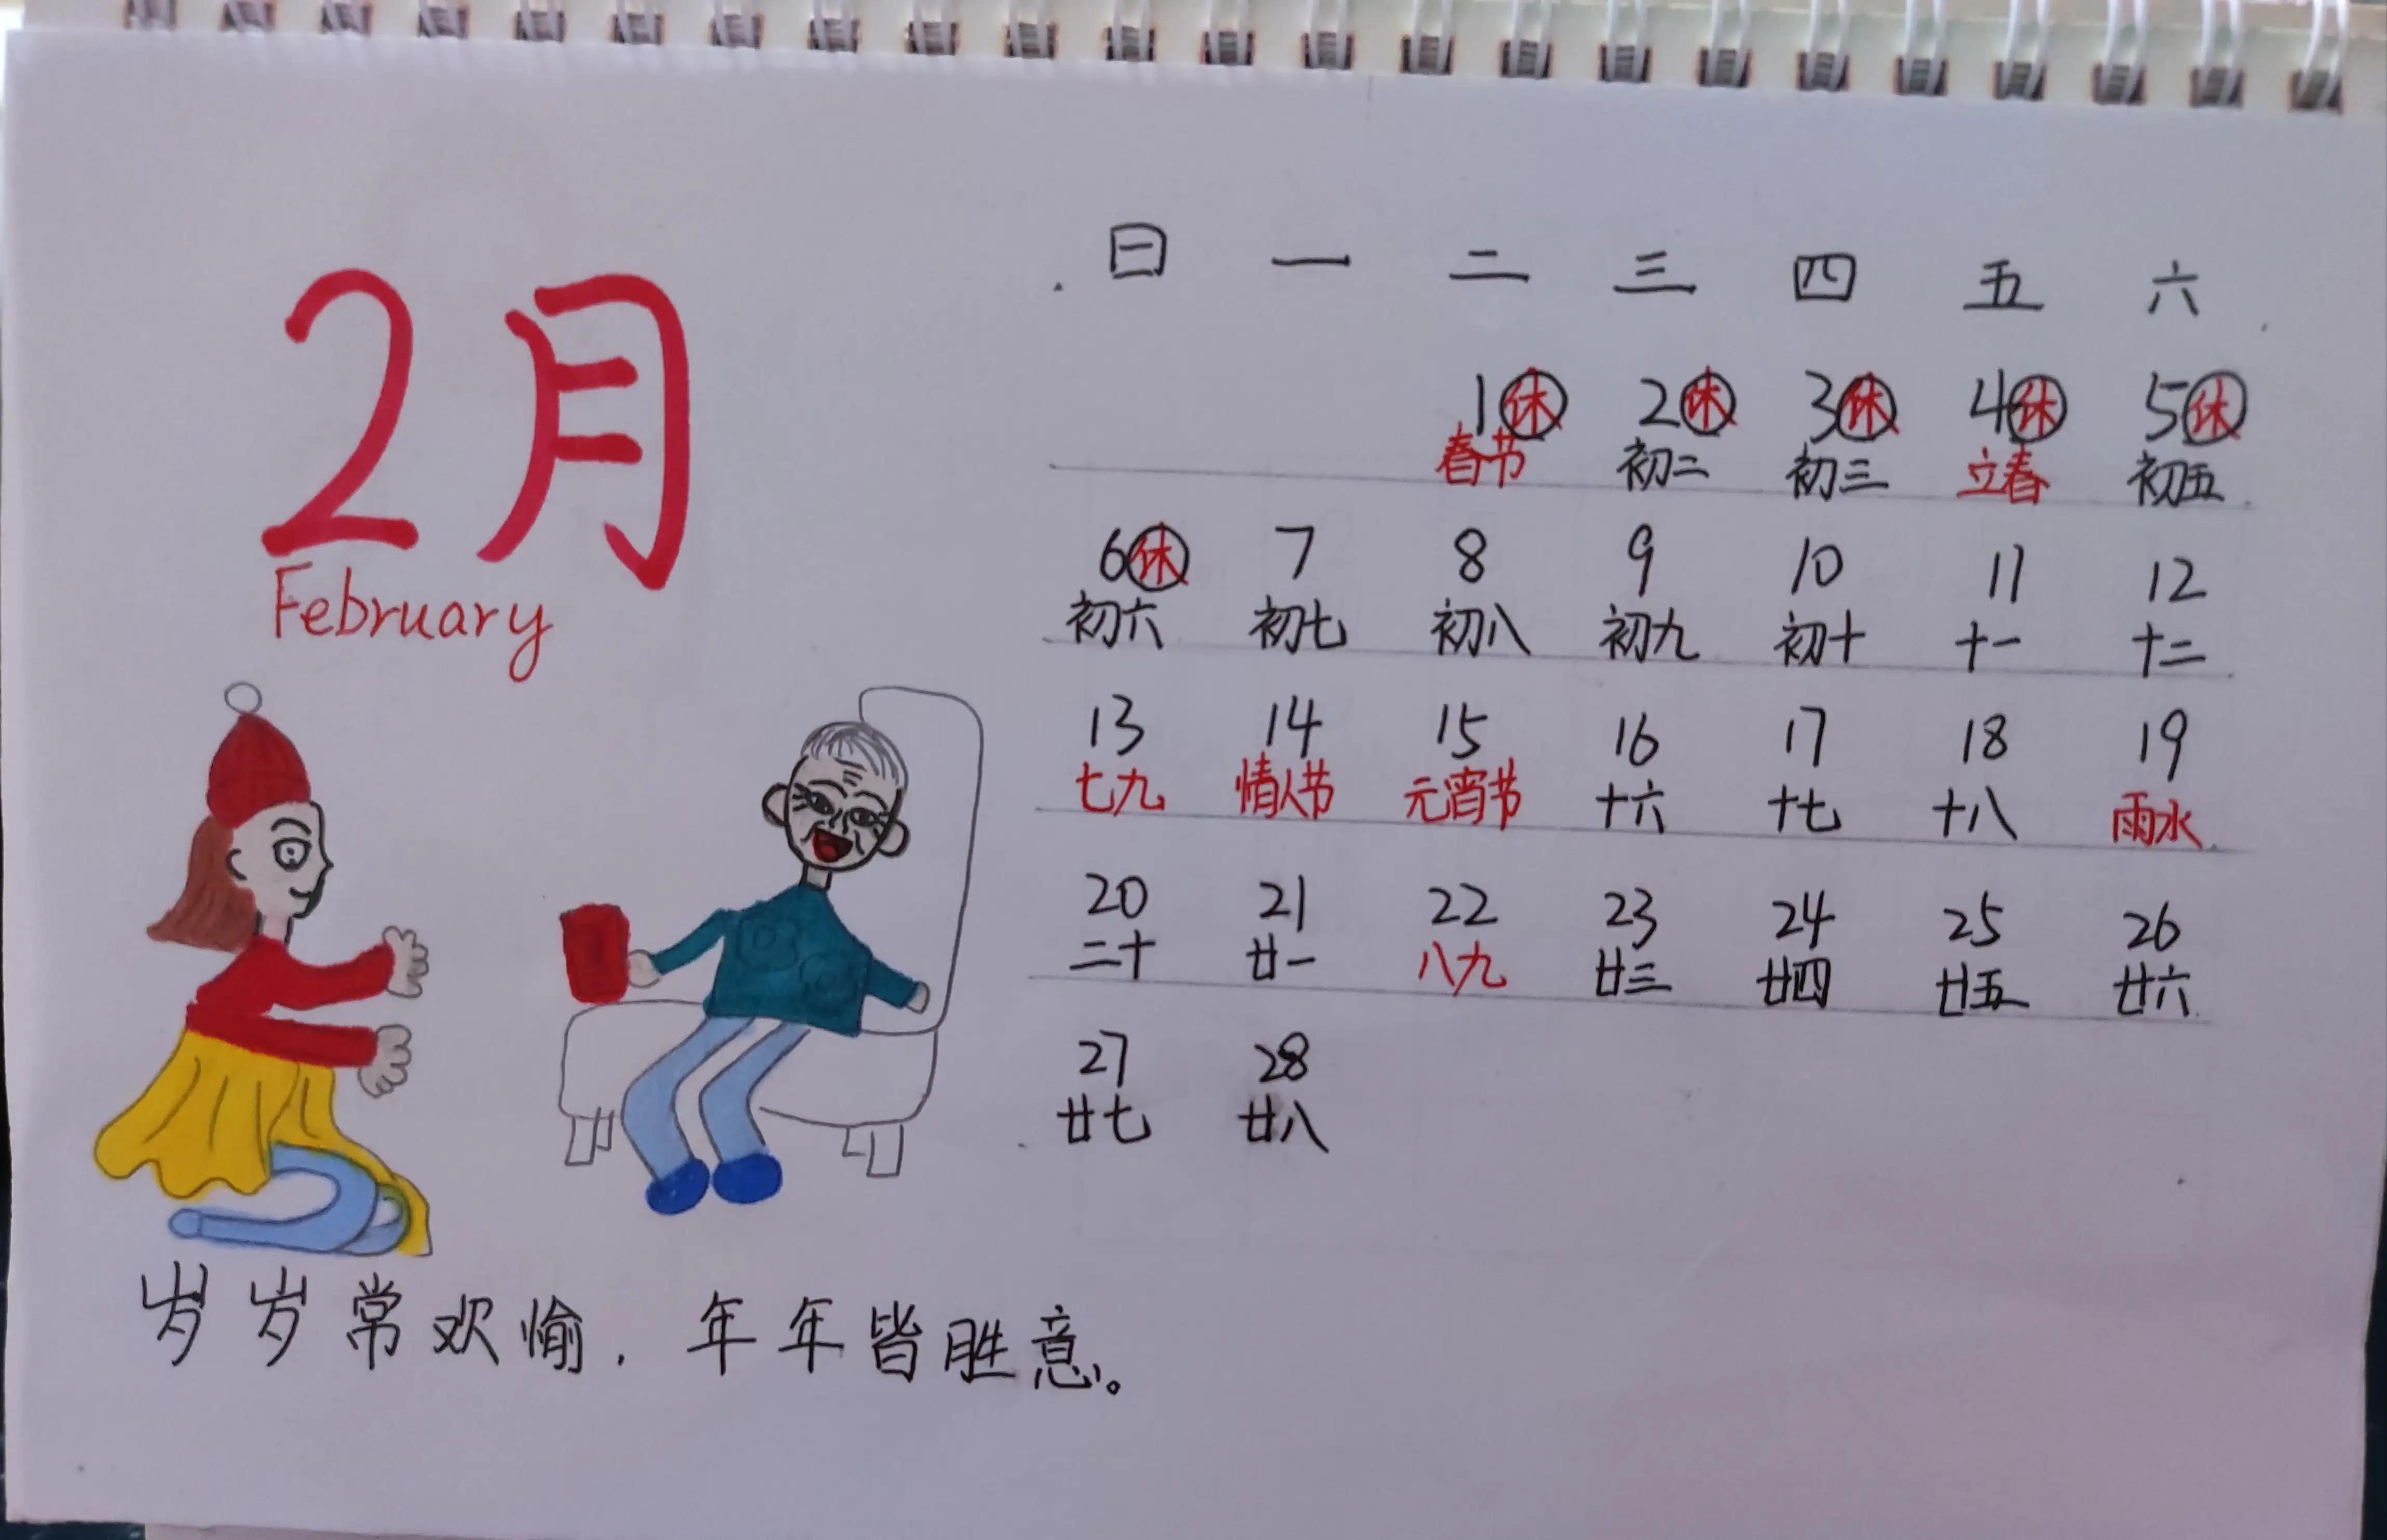 2月
February
日 一 二 三 四 五 六
1休 2休 3休 4休 5休
春节 初二 初三 立春 初五
6休 7 8 9 10 11 12
初六 初七 初八 初九 初十 十一 十二
13 14 15 16 17 18 19
七九 情人节 元宵节 十六 十七 十八 雨水
20 21 22 23 24 25 26
二十 廿一 八九 廿三 廿四 廿五 廿六
27 28
廿七 廿八
岁岁常欢愉,年年皆胜意。